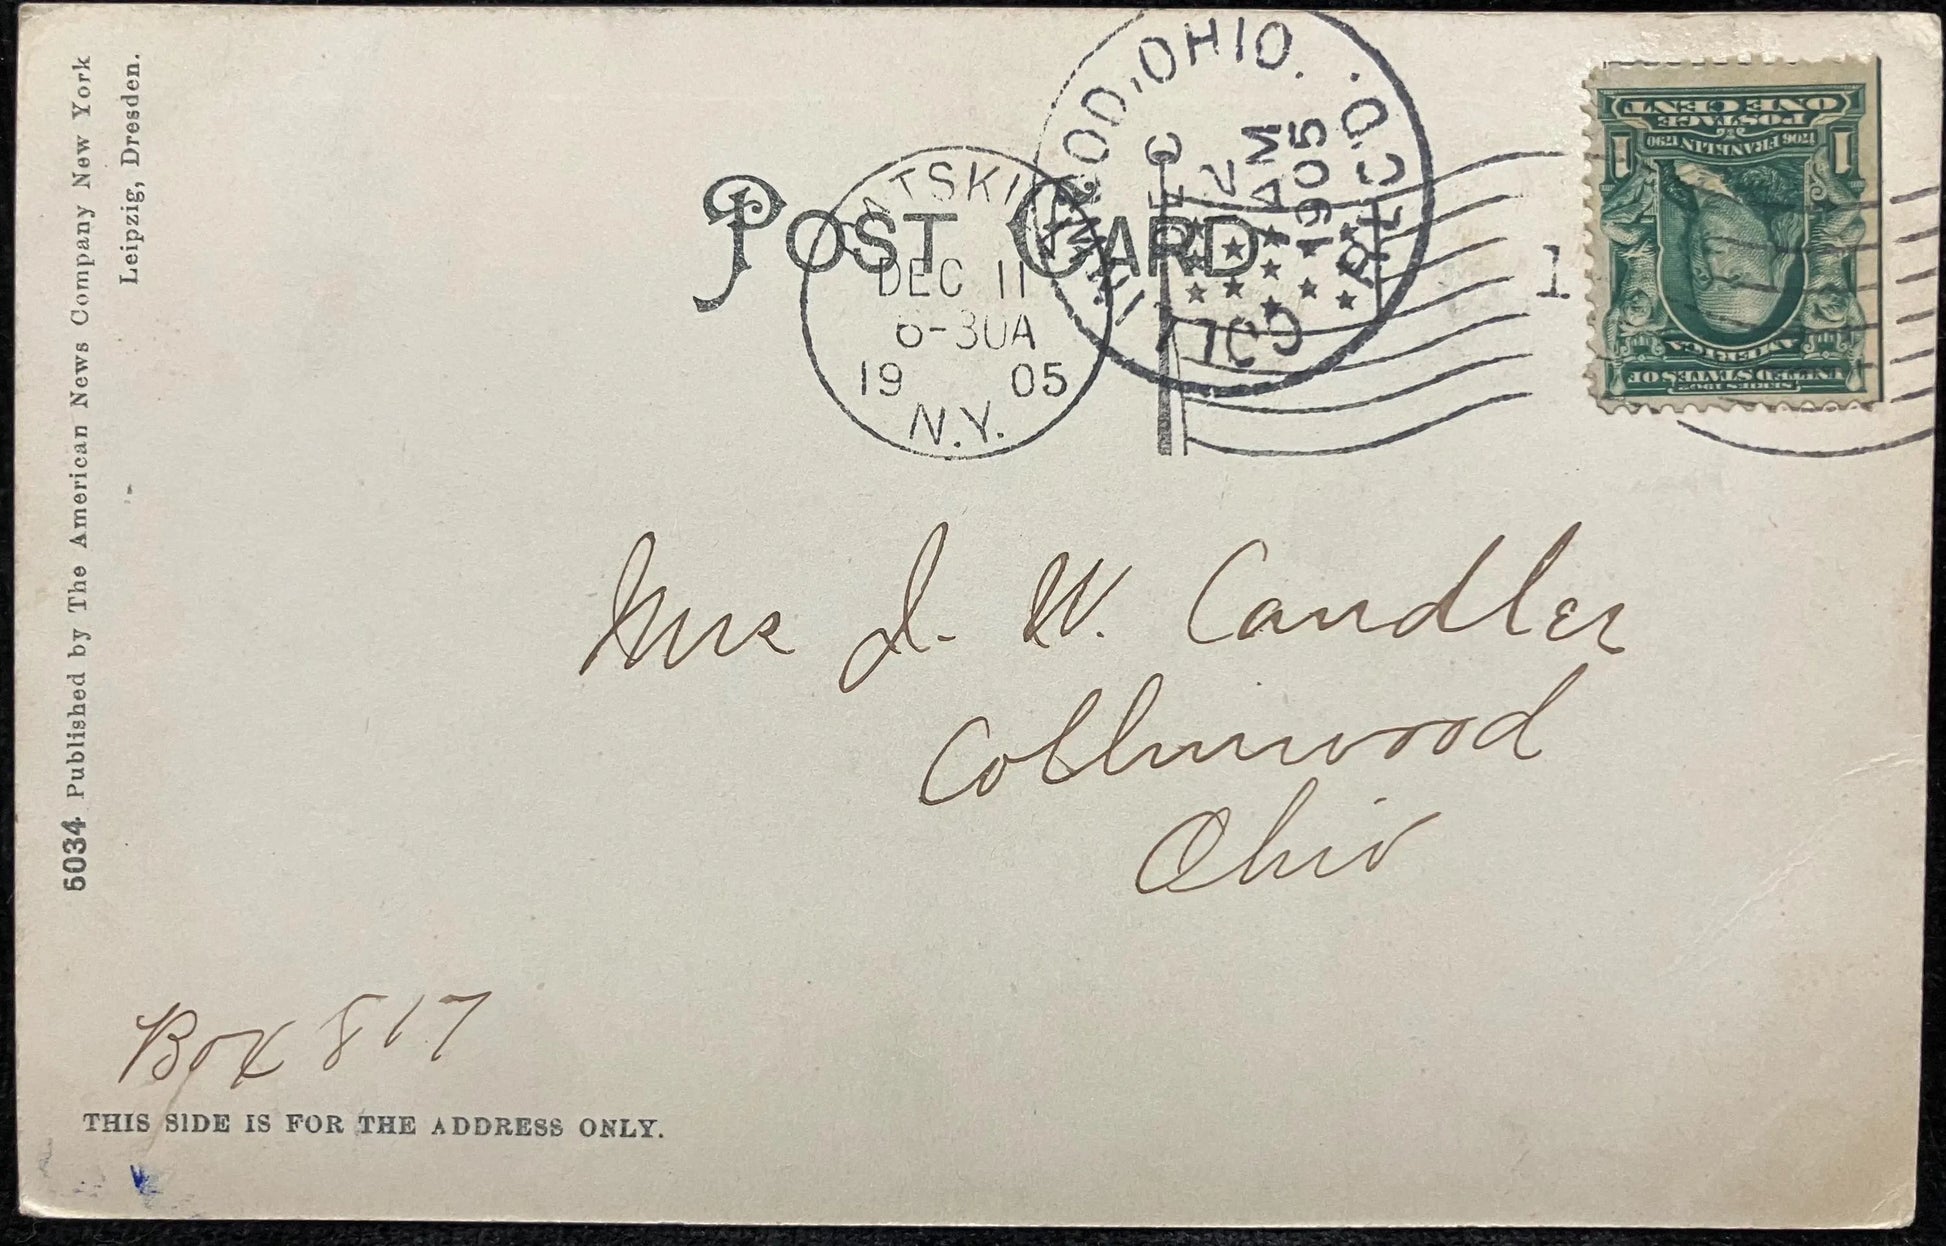 5034 Published by The American News Company New York
Leipzig, Dresden.
POST CARD
DEC 11
6-30A
19 05
N.Y.
COLLINWOOD, OHIO. REC'D.
DEC
12
AM
1905
1
ONE CENT
POSTAGE
1706 FRANKLIN 1790
1 1
UNITED STATES OF
AMERICA
SERIES 1902
Mrs J. W. Candler
Collinwood
Ohio
Box 817
THIS SIDE IS FOR THE ADDRESS ONLY.